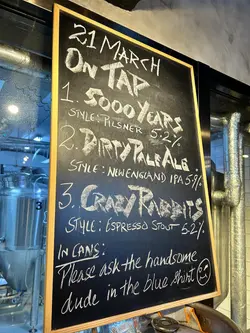 21 MARCH
ON TAP
1. 5000 YEARS
STYLE: PILSNER 5.2%
2. DIRTY PALE ALE.
STYLE: NEW ENGLAND IPA 5.4%
3. CRAZY RABBITS
STYLE: ESPRESSO STOUT 5.2%
IN CANS:
Please ask the handsome
dude in the blue shirt